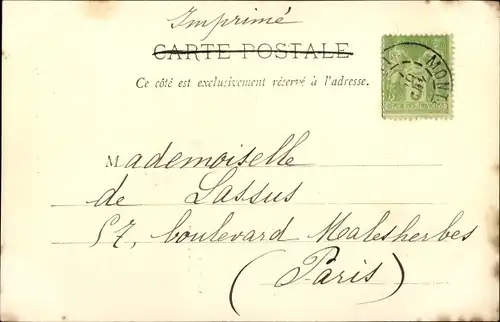 Imprimé
CARTE POSTALE
Ce côté est exclusivement réservé à l'adresse.
Mademoiselle
de Lassus
57, boulevard Malesherbes
(Paris)
MONT